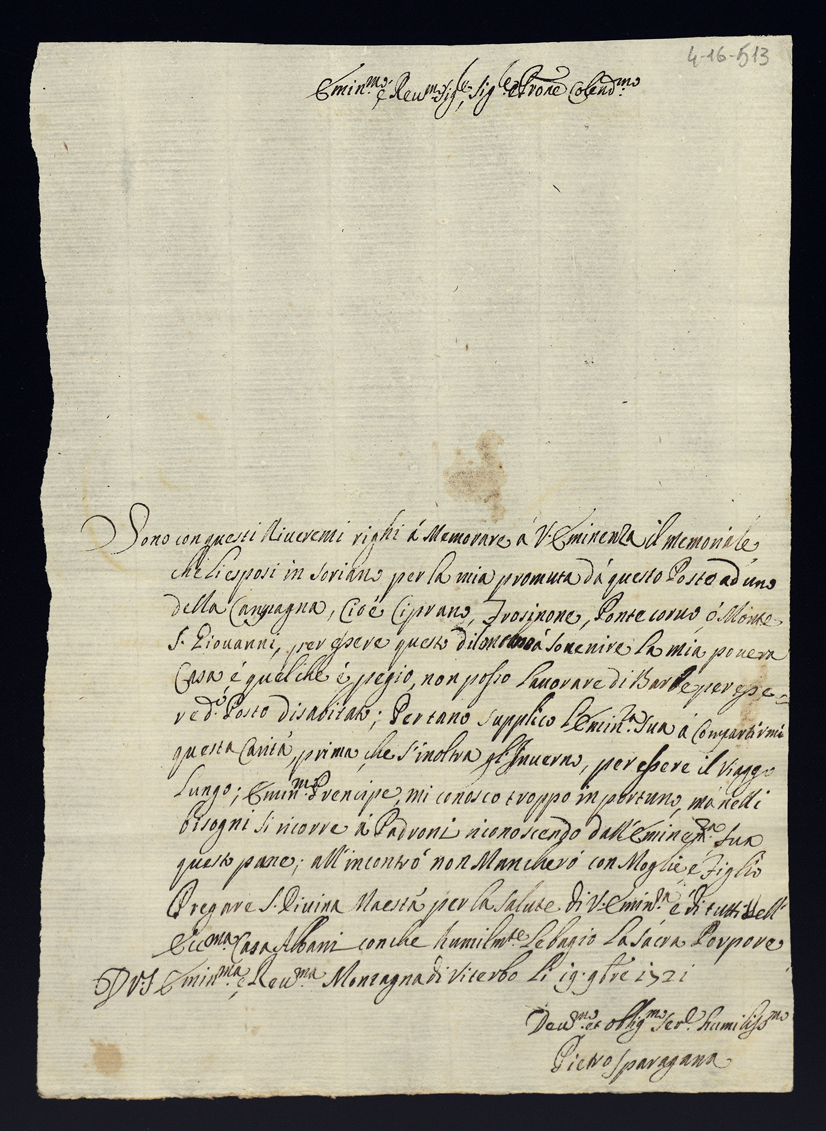 4-16-513
Emin.mo e Reu.mo Sig.e Sig.e e Prone Colend.mo
Sono con questi Riuerenti righi á Memorare á V. Eminenza il memoriale
che li esposi in Soriano per la mia promuta dá questo Posto ad uno
della Campagna, Cioé Ciprano, Frosinone, Ponte coruo, ó Monte
S. Giouanni, per essere questo di á Souenire la mia pouera
Casa é quel che é pegio, non posso Lauorare di Barbe per esse=
re d.o Posto disabitato; Per tano Supplico L'Emin.za Sua á Compartirmi
questa Caritá, prima, che S'inoltra gl'Inuerno, per essere il Viaggo
Lungo; Emin.mo Prencipe, mi conosco troppo inportuno, má nelli
bisogni Si ricorre á Padroni riconoscendo dall' Sua
questo pane; all'incontró non Mancheró con Moglie e Figlio
Pregare S. Diuina Maestá per la Salute di V. Emin.za é di tutti dell'
Ecc.ma Casa Albani con che humilm.te Le bagio La Sacra Porpora
D V. S. Emin.ma e Reu.ma Montagna di Viterbo Li 19. 9bre 1721
Deu.mo et obblig.mo Ser.e humiliss.mo
Pietro Sparagana